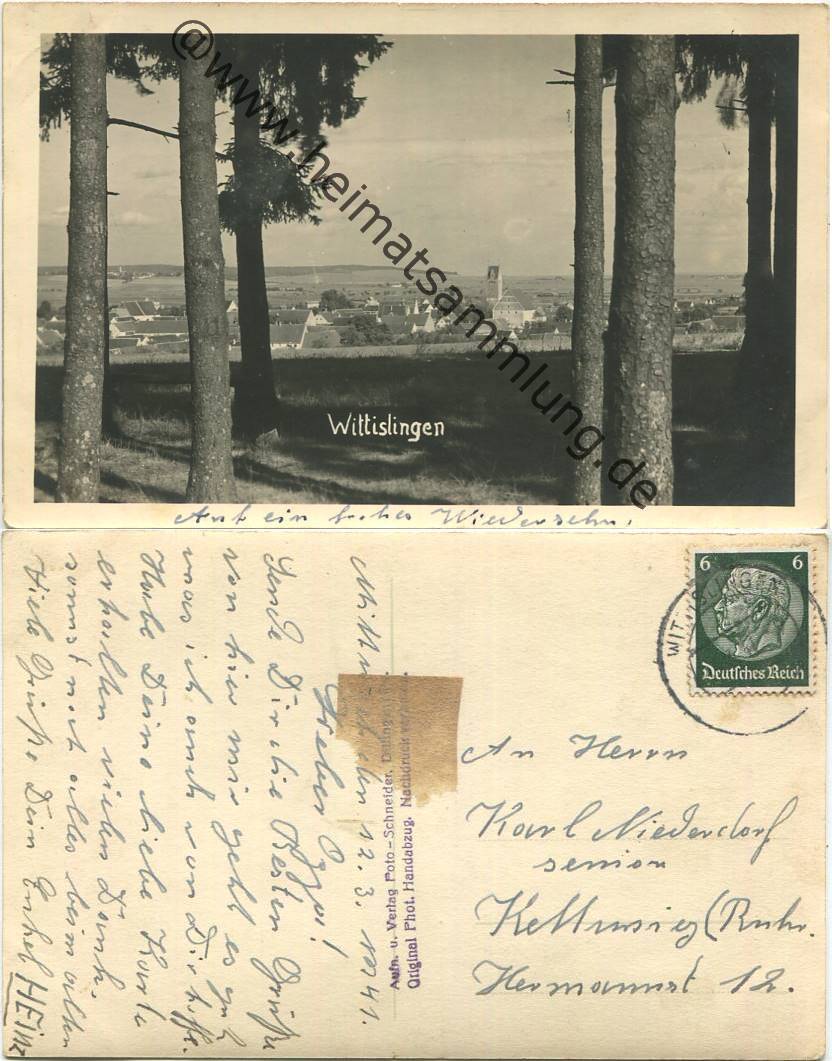 @www.heimatsammlung.de
Wittislingen
Auf ein frohes Wiedersehn.
6 6
Deutsches Reich
WITTISLINGEN
An Herrn
Karl Niederdorf
senior
Kettwig (Ruhr.
Hermannst 12.
Aufn. u. Verlag Foto-Schneider, Dillingen
Original Phot. Handabzug. Nachdruck verboten.
12. 3. 1941.
Lieber Oppi!
Sende Dir die Besten Grüße
von hier mir geht es gut
was ich auch von Dir hoffe.
Habe Deine liebe Karte
erhalten vielen Dank.
sonst noch alles beim alten
Viele Grüße Dein Enkel HEINZ